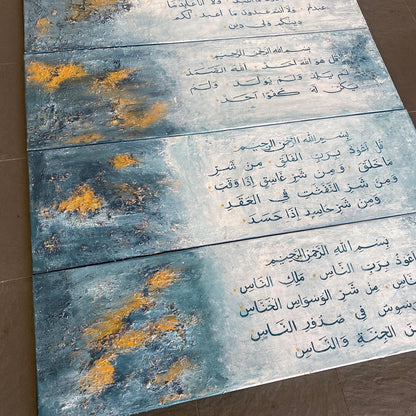 عبدتم ولا أنتم عابدون ما أعبد لكم
دينكم ولي دين
بسم الله الرحمن الرحيم
قل هو الله أحد الله الصمد
لم يلد ولم يولد ولم
يكن له كفوا أحد
بسم الله الرحمن الرحيم
قل أعوذ برب الفلق من شر
ما خلق ومن شر غاسق إذا وقب
ومن شر النفثت في العقد
ومن شر حاسد إذا حسد
بسم الله الرحمن الرحيم
أعوذ برب الناس ملك الناس
الناس من شر الوسواس الخناس
يوسوس في صدور الناس
من الجنة والناس